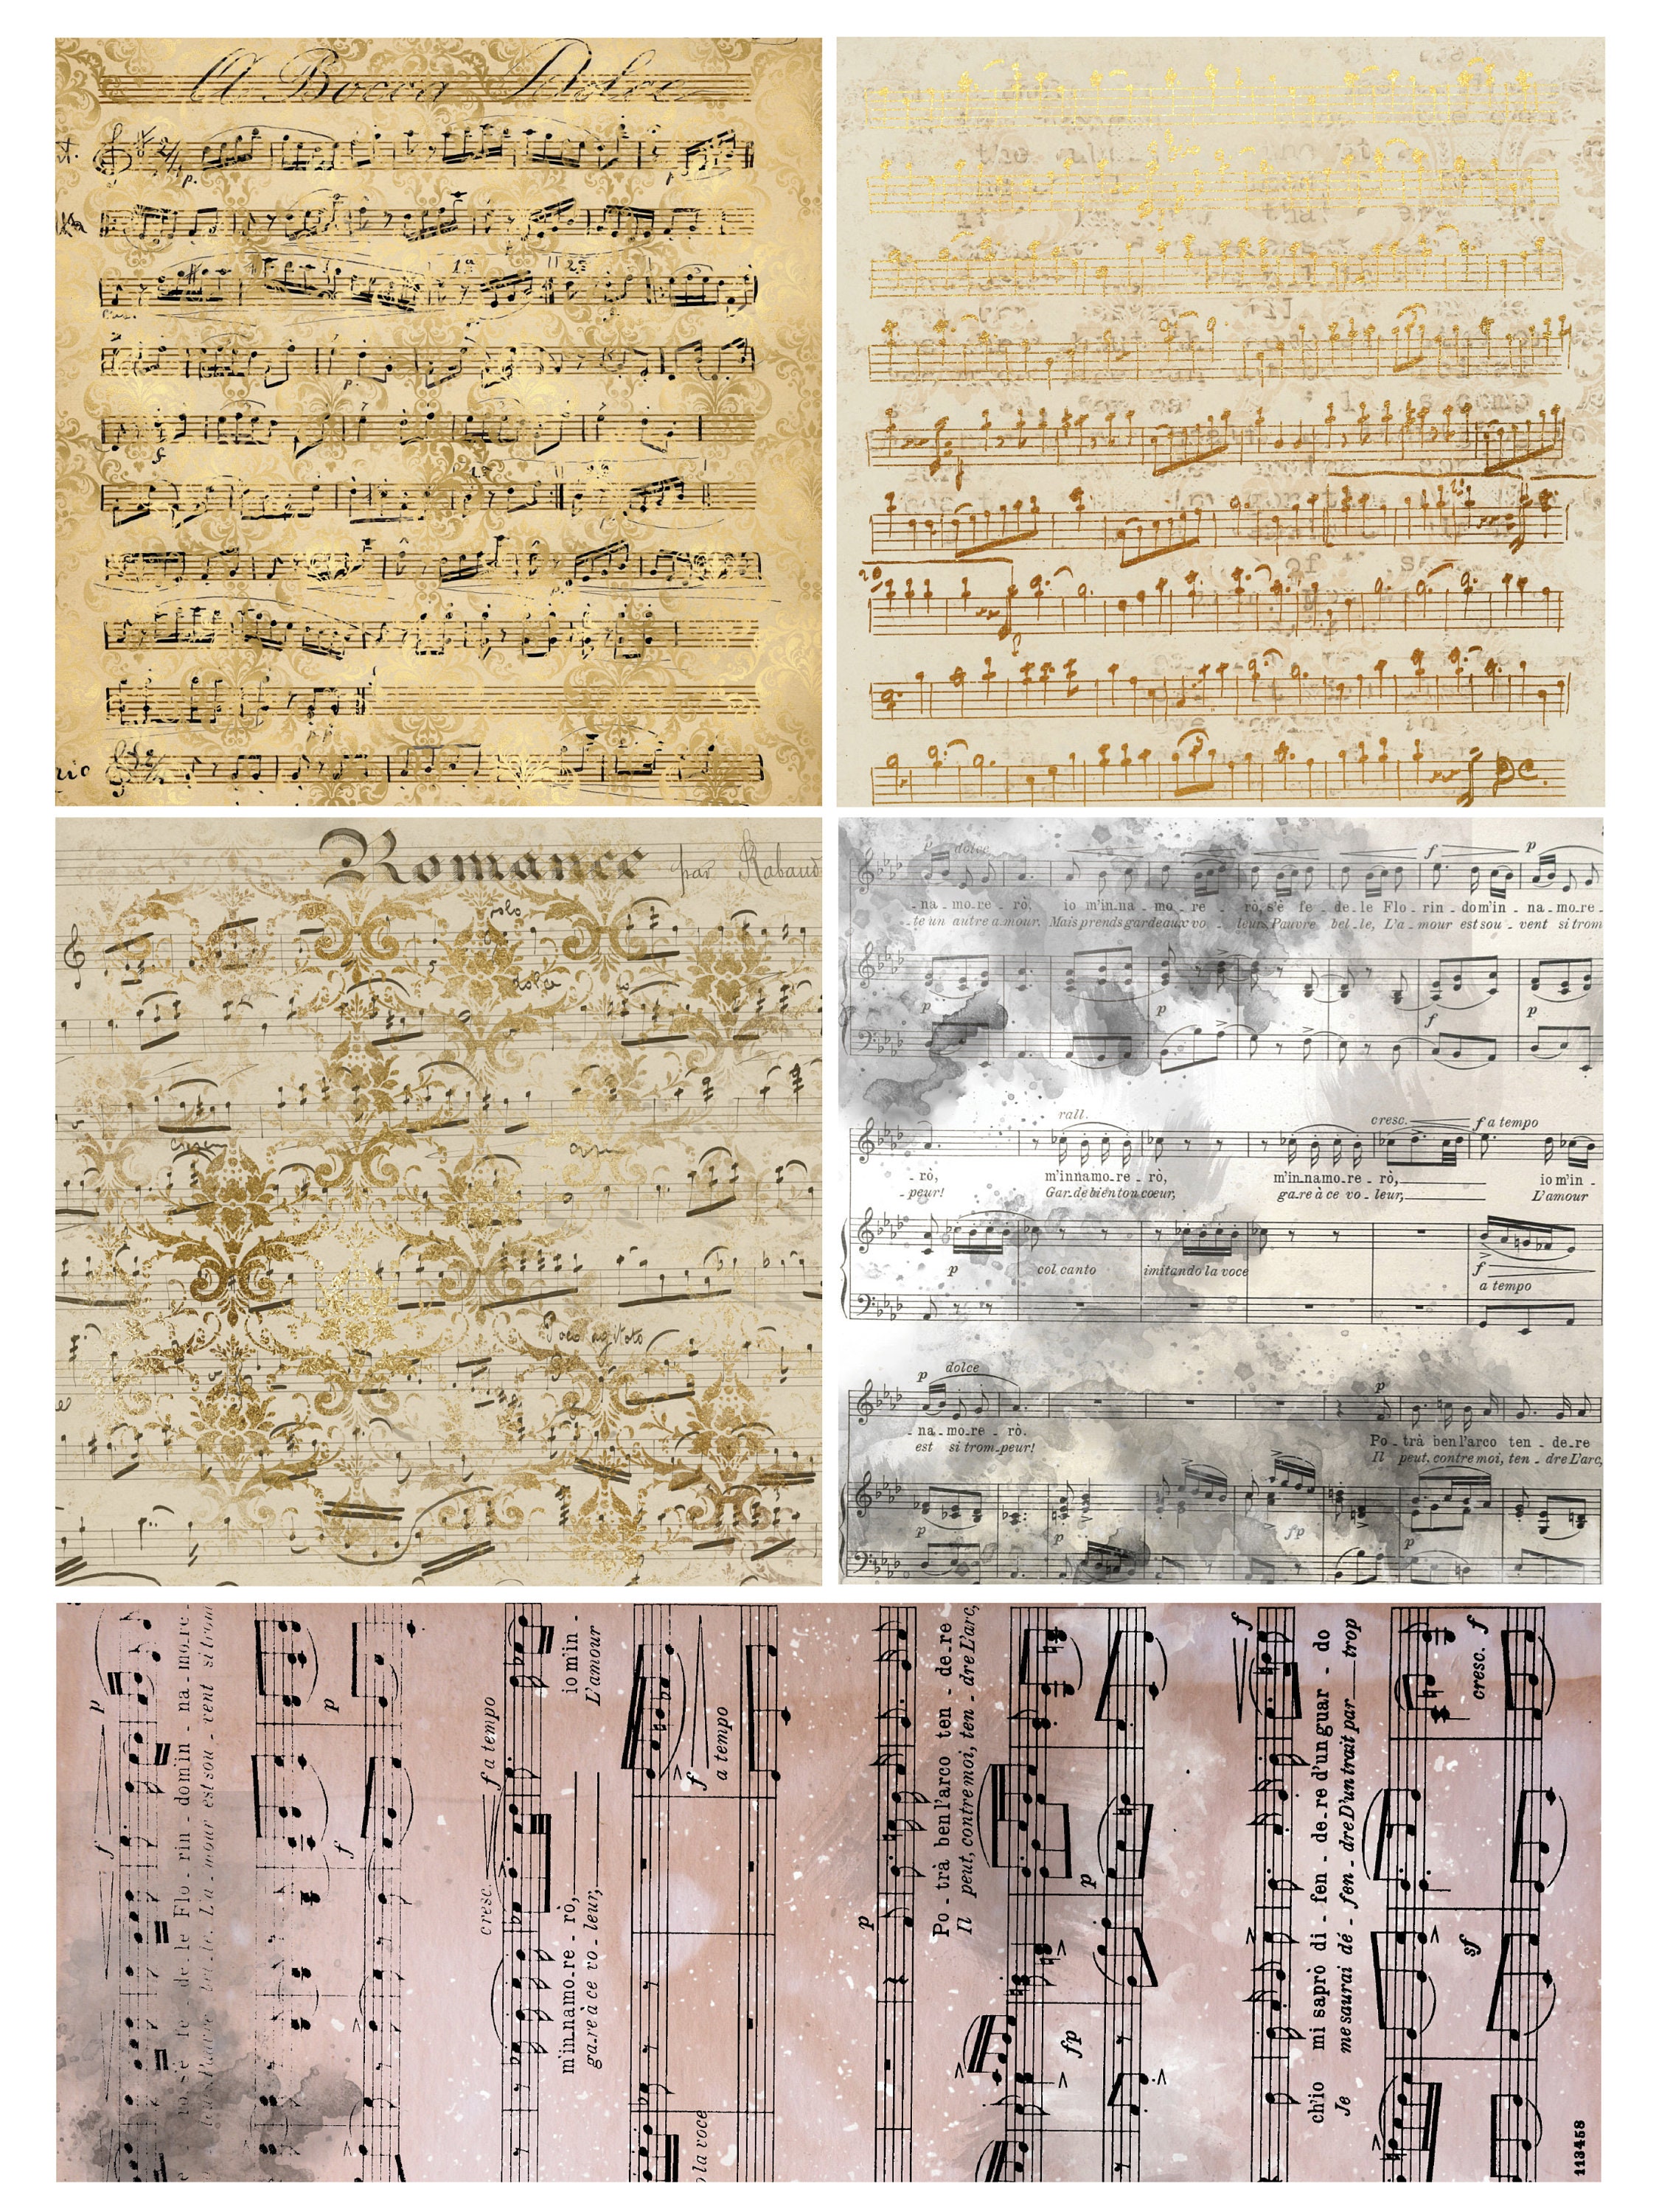 A Bocca Dolce
p.
p
1ª
2ª
p
f
pp
the
that
of
D.C.
Romance par Rabaud
solo
dolce
Poco agitato
p dolce f p
- na - mo - re - rò, io m'in - na - mo - re - rò, s'è fe - de - le Flo - rin - do m'in - na - mo - re -
- te un autre amour. Mais prends garde aux vo - leurs, Pauvre bel - le, L'a - mour est sou - vent si trom
p p f p
rall. cresc. f a tempo
- rò, m'innamo - re - rò, m'innamo - re - rò, io m'in -
- peur! Gar - de bien ton cœur, ga - re à ce vo - leur, L'amour
p col canto imitando la voce f
a tempo
p dolce p
- na - mo - re - rò. Po - trà ben l'arco ten - de - re
est si trom - peur! Il peut, contre moi, ten - dre L'arc,
p p fp p
p f
- rò, s'è fe - de - le Flo - rin - do m'in - na - mo - re -
leurs, Pauvre bel - le, L'a - mour est sou - vent si trom
p f
cresc. f a tempo
m'innamo - re - rò, io m'in -
ga - re à ce vo - leur, L'amour
f a tempo
la voce
p
Po - trà ben l'arco ten - de - re
Il peut, contre moi, ten - dre L'arc,
fp p
f
ch'io mi saprò di - fen - de - re d'un guar - do
Je me saurai dé - fen - dre D'un trait par trop
sf cresc. f
113458